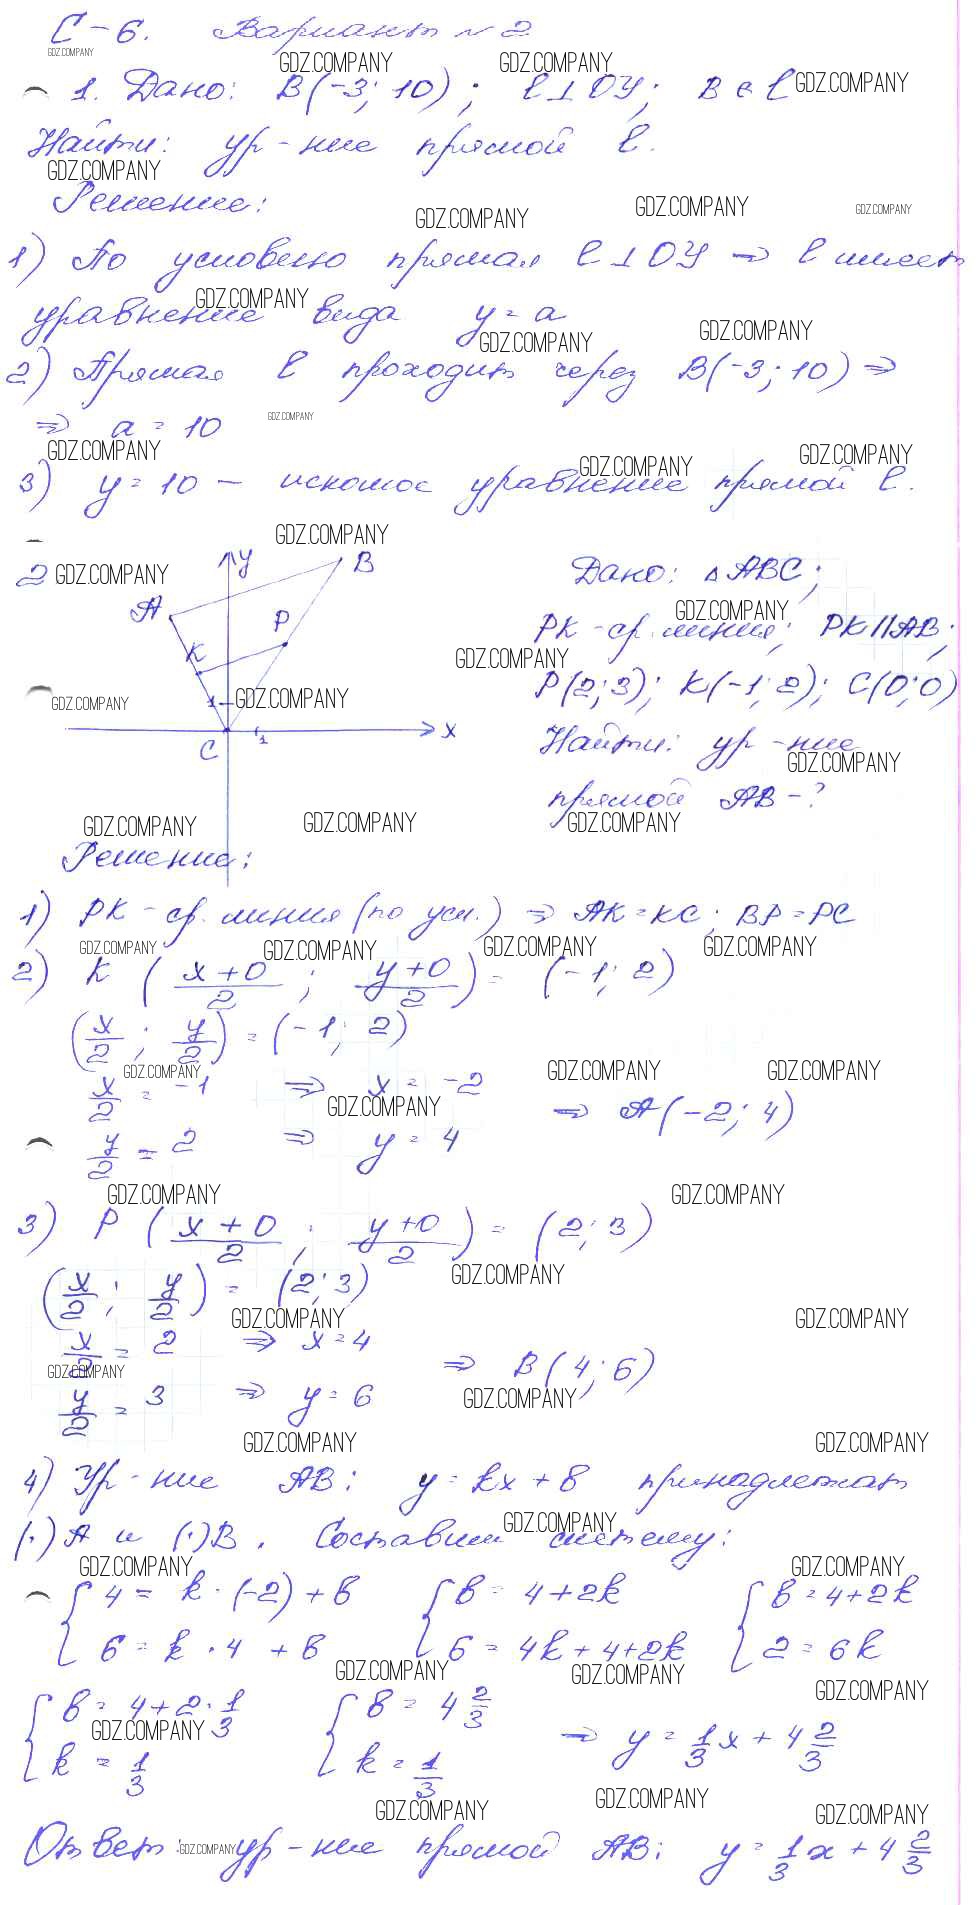 С-6. Вариант № 2
1. Дано: B(-3; 10); l⊥OY; B∈l
Найти: ур-ние прямой l.
Решение:
1) По условию прямая l⊥OY ⇒ l имеет
уравнение вида y = a
2) Прямая l проходит через B(-3; 10) ⇒
⇒ a = 10
3) y = 10 – искомое уравнение прямой l.
2
y
B
A
P
K
1
x
C
1
Дано: △ABC;
PK - ср. линия; PK||AB;
P(2; 3); K(-1; 2); C(0; 0)
Найти: ур-ние
прямой AB - ?
Решение:
1) PK - ср. линия (по усл.) ⇒ AK = KC; BP = PC
2) K ((x+0)/2 ; (y+0)/2) = (-1; 2)
(x/2 ; y/2) = (-1; 2)
x/2 = -1 ⇒ x = -2
⇒ A(-2; 4)
y/2 = 2 ⇒ y = 4
3) P ((x+0)/2 ; (y+0)/2) = (2; 3)
(x/2 ; y/2) = (2; 3)
x/2 = 2 ⇒ x = 4
⇒ B(4; 6)
y/2 = 3 ⇒ y = 6
4) Ур-ние AB: y = kx + b принадлежат
(·)A и (·)B. Составим систему:
{4 = k·(-2) + b {b = 4+2k {b = 4+2k
6 = k·4 + b 6 = 4k+4+2k 2 = 6k
{b = 4+2·1/3 {b = 4 2/3
k = 1/3 k = 1/3 ⇒ y = 1/3 x + 4 2/3
Ответ: ур-ние прямой AB: y = 1/3 x + 4 2/3
GDZ.COMPANY